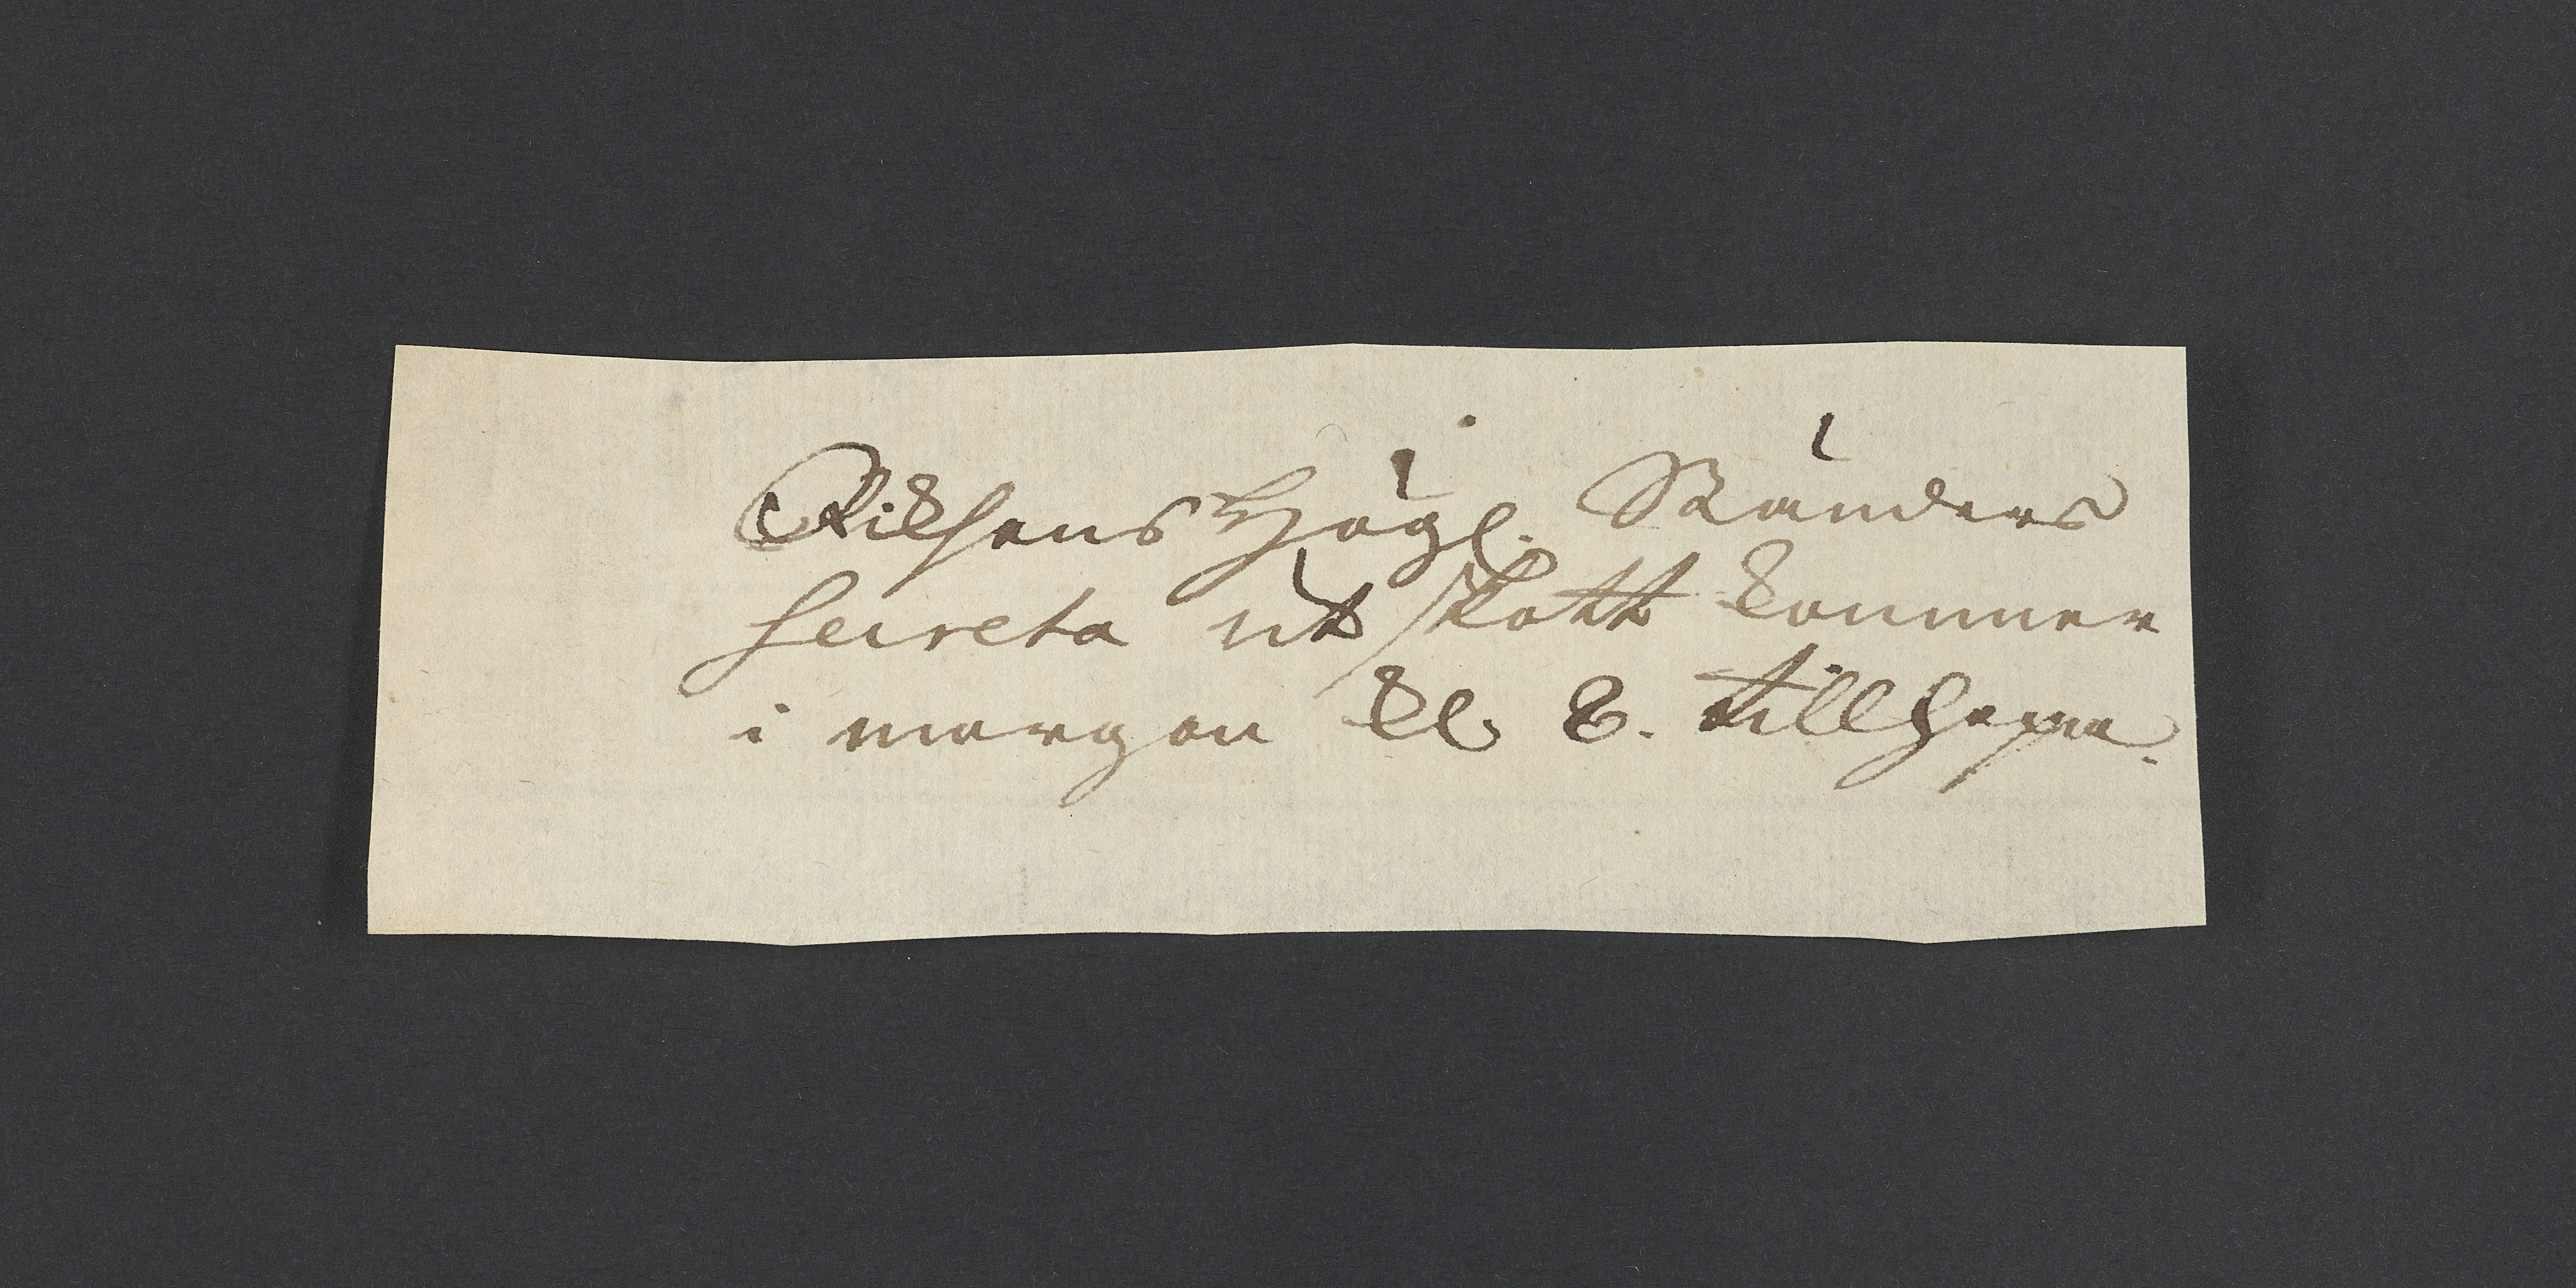 Riksens Högl. Ständers
Secreta utskott kommer
i morgon kl 8. tillhopa.